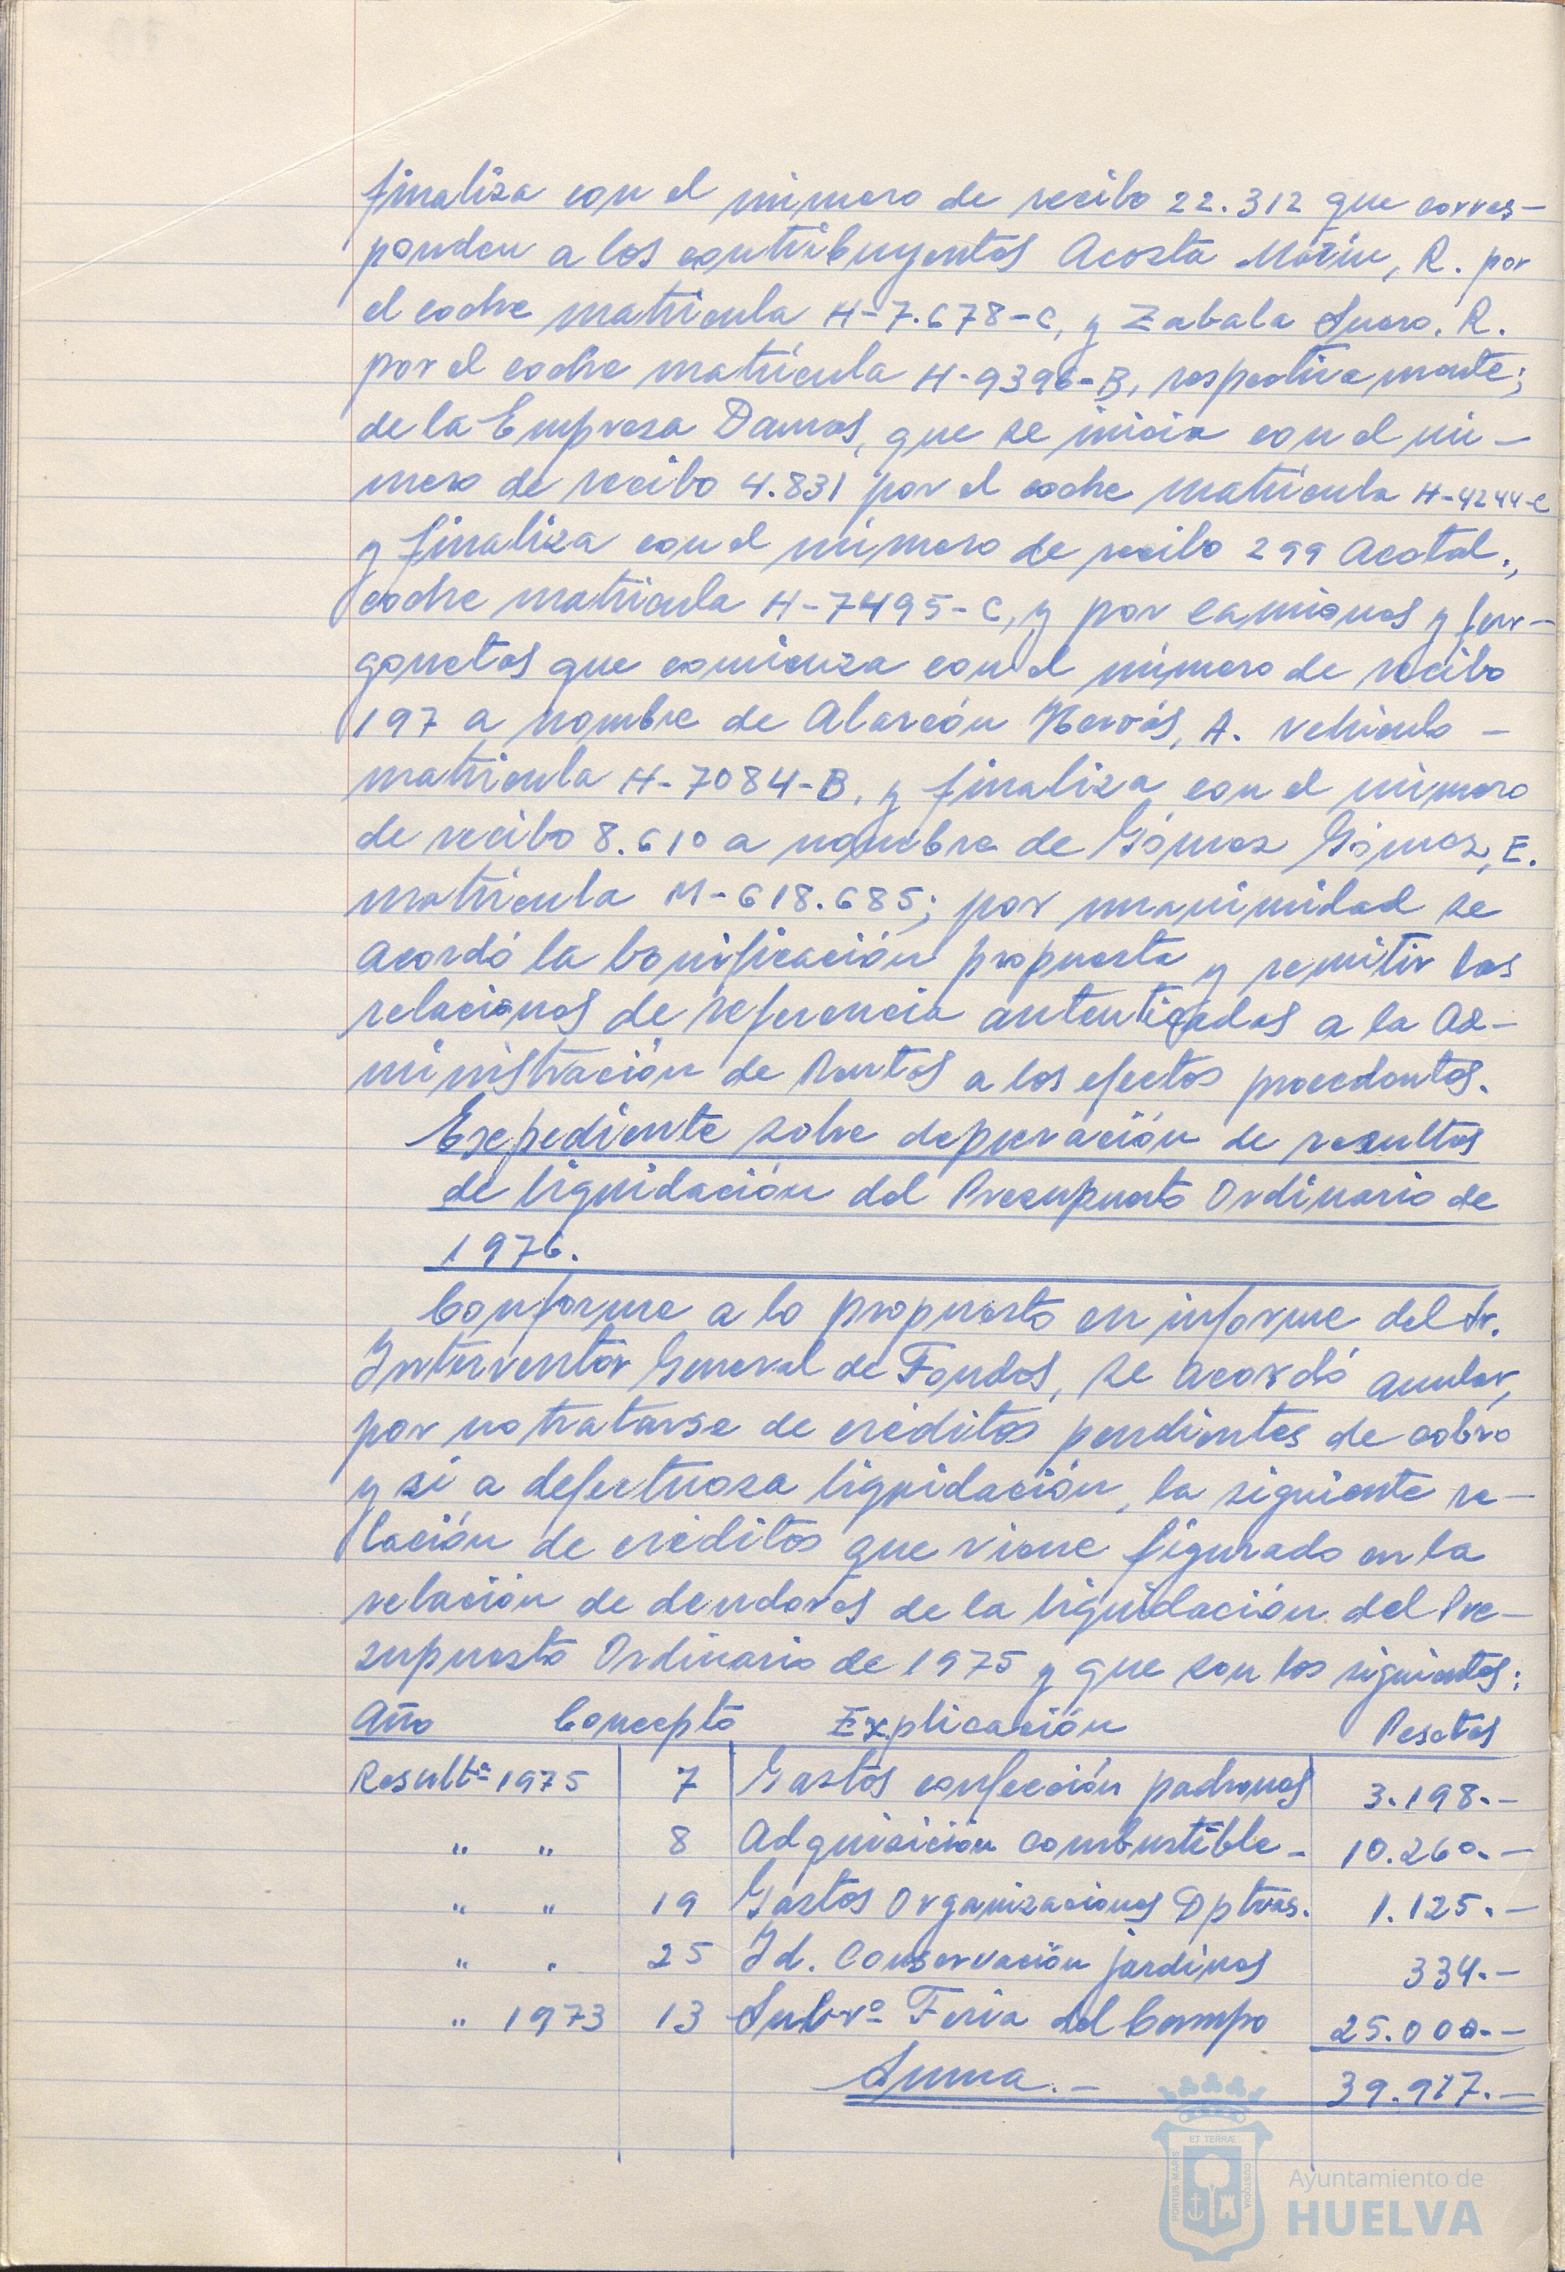 finaliza con el número de recibo 22.312 que corres-
ponden a los contribuyentes Acosta Marín, R. por
el coche matrícula H-7.678-C, y Zabala Suero, R.
por el coche matrícula H-9396-B, respectivamente;
de la Empresa Damas, que se inicia con el nú-
mero de recibo 4.831 por el coche matrícula H-4244-C
y finaliza con el número de recibo 299 Acotal.,
coche matrícula H-7495-C, y por camiones y fur-
gonetas que comienza con el número de recibo
197 a nombre de Alarcón Hervás, A. vehículo -
matrícula H-7084-B, y finaliza con el número
de recibo 8.610 a nombre de Gómez Gómez, E.
matrícula M-618.685; por unanimidad se
acordó la bonificación propuesta y remitir las
relaciones de referencia autenticadas a la Ad-
ministración de Rentas a los efectos procedentes.
Expediente sobre depuración de resultas
de liquidación del Presupuesto Ordinario de
1976.
Conforme a lo propuesto en informe del Sr.
Interventor General de Fondos, se acordó anular,
por no tratarse de créditos pendientes de cobro
y si a defectuosa liquidación, la siguiente re-
lación de créditos que viene figurado en la
relación de deudores de la liquidación del Pre-
supuesto Ordinario de 1975 y que son los siguientes:
Año Concepto Explicación Pesetas
Resultª 1975 7 Gastos confección padrones 3.198.-
" " 8 Adquisición combustible - 10.260.-
" " 19 Gastos Organizaciones Dptvas. 1.125.-
" " 25 Id. Conservación jardines 334.-
" 1973 13 Subvº Feria del Campo 25.000.-
Suma.- 39.917.-
PORTUS MARIS ET TERRÆ CUSTODIA
Ayuntamiento de
HUELVA